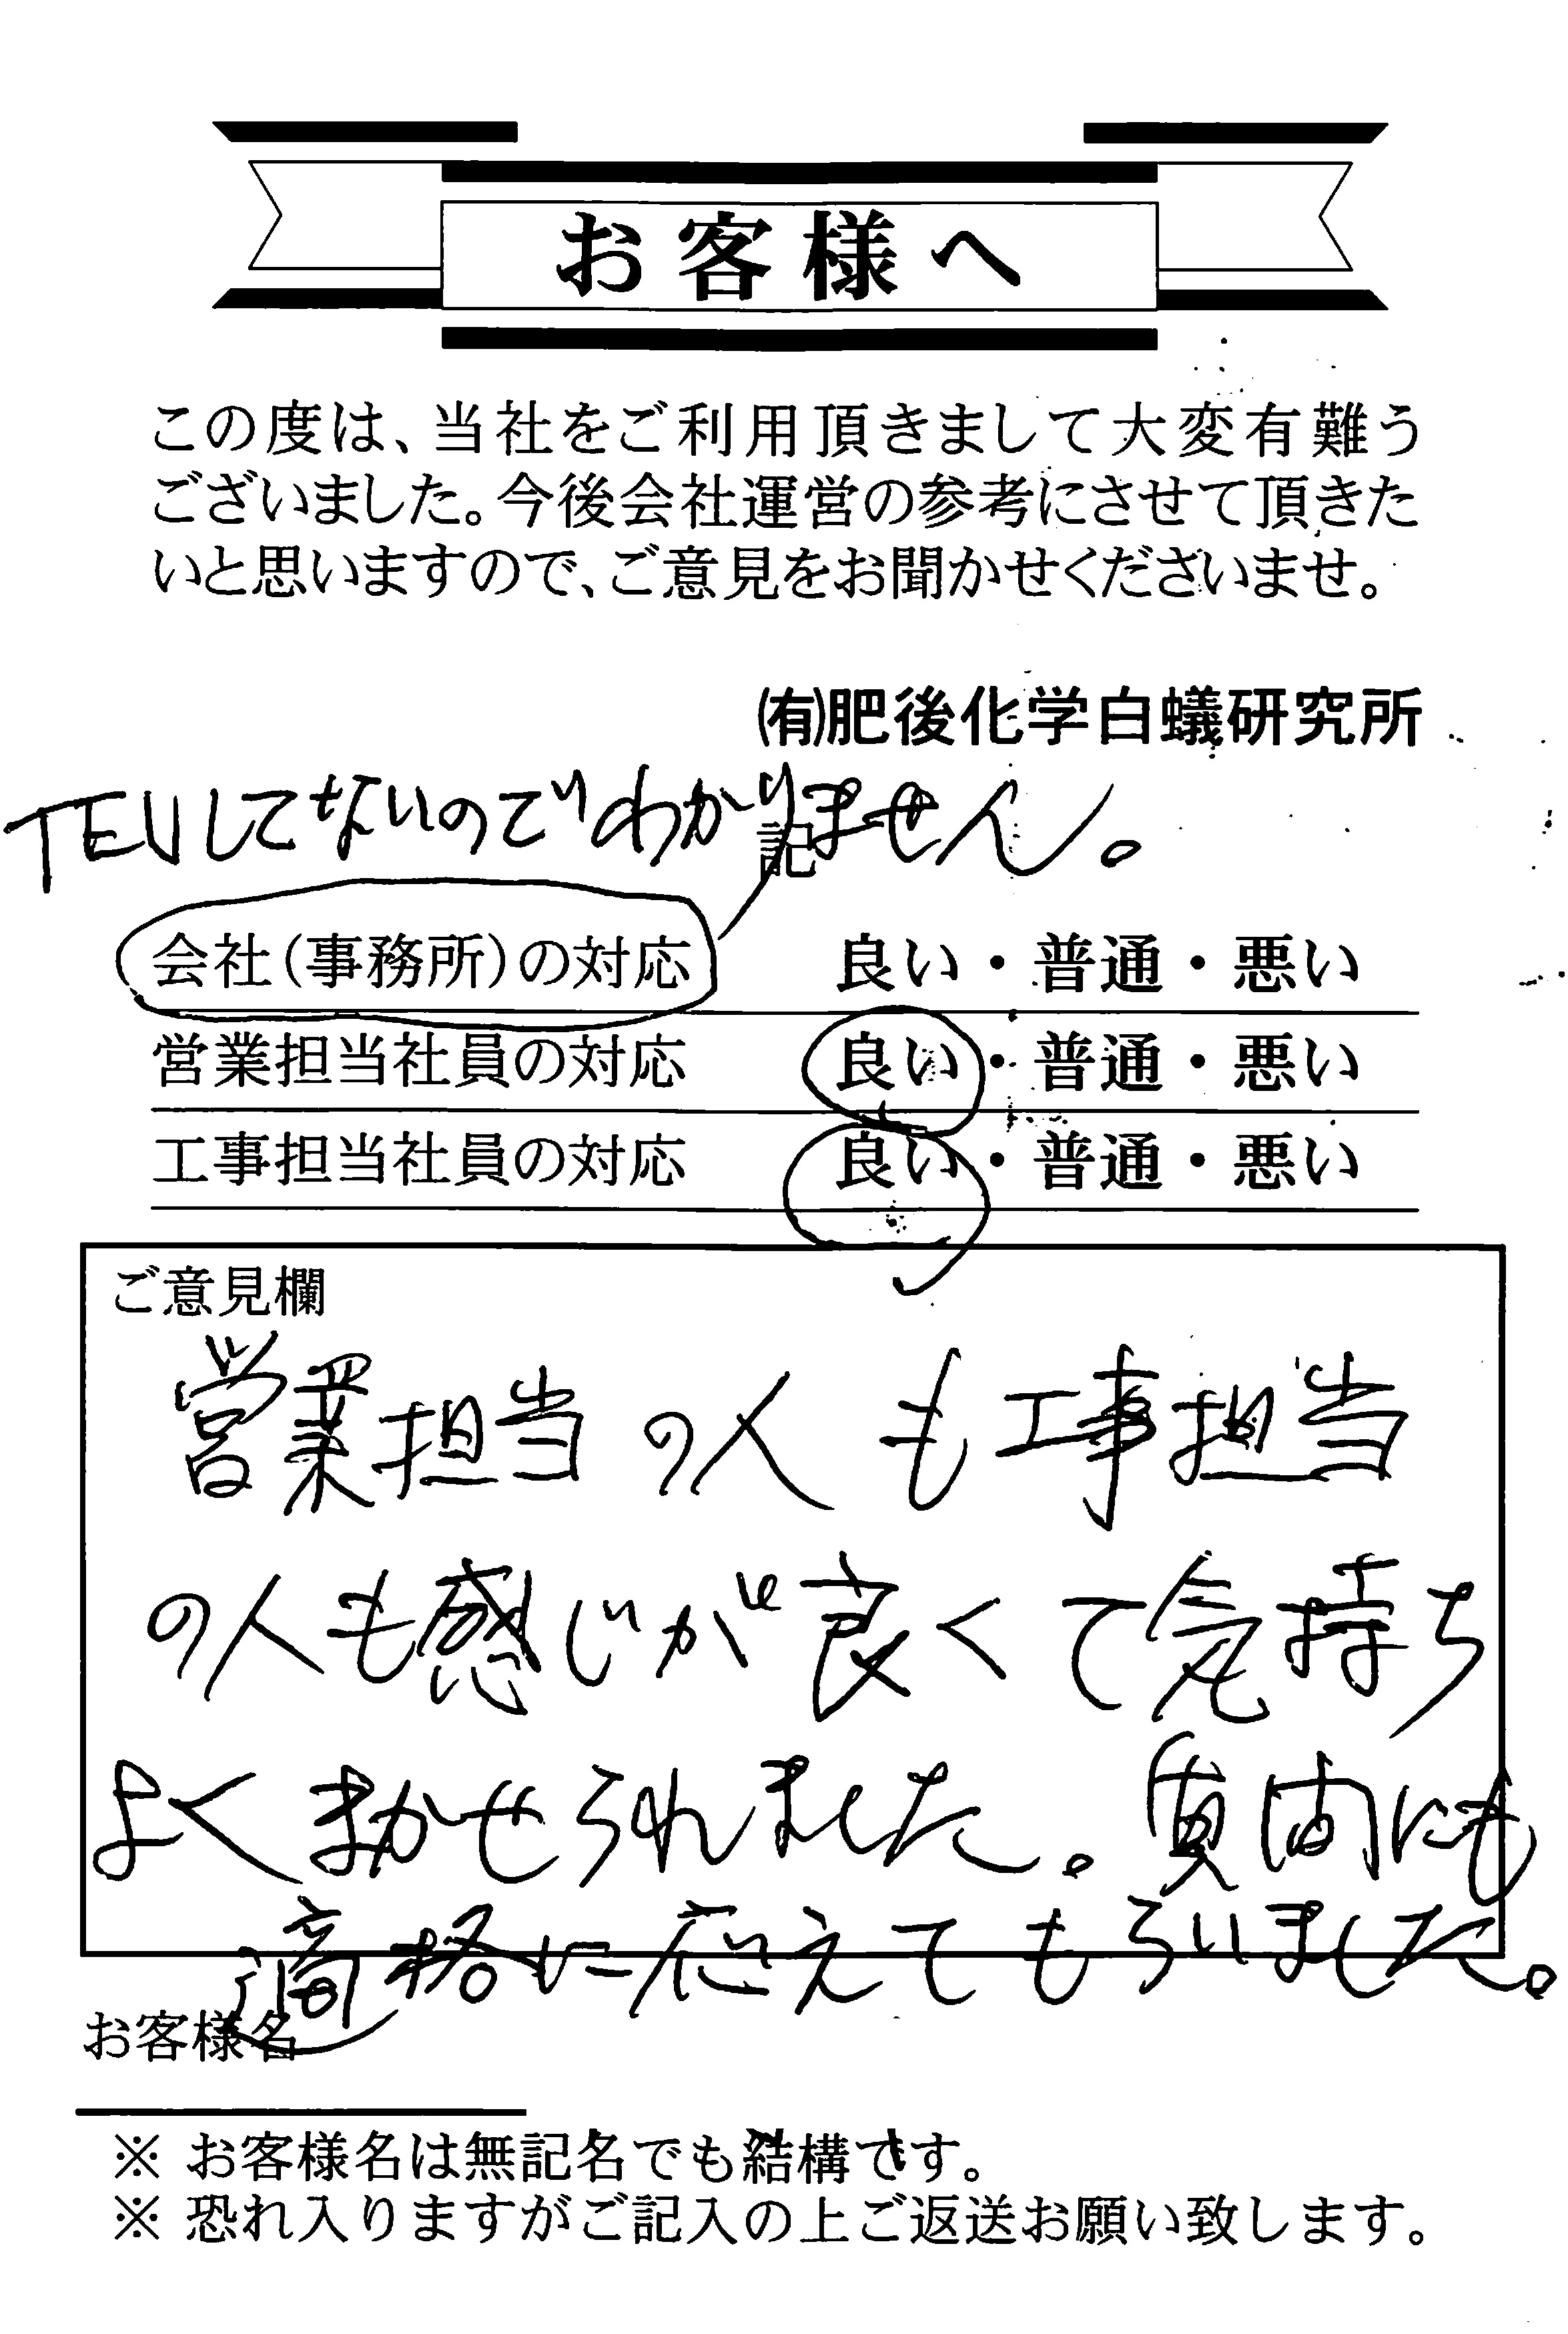 お客様へ
この度は、当社をご利用頂きまして大変有難う
ございました。今後会社運営の参考にさせて頂きた
いと思いますので、ご意見をお聞かせくださいませ。
㈲肥後化学白蟻研究所
TELしてないのでわかりません。
記
会社(事務所)の対応 良い・普通・悪い
営業担当社員の対応 良い・普通・悪い
工事担当社員の対応 良い・普通・悪い
ご意見欄
営業担当の人も工事担当
の人も感じが良くて気持ち
よくまかせられました。質問にも
適格に応えてもらいました。
お客様名
※ お客様名は無記名でも結構です。
※ 恐れ入りますがご記入の上ご返送お願い致します。